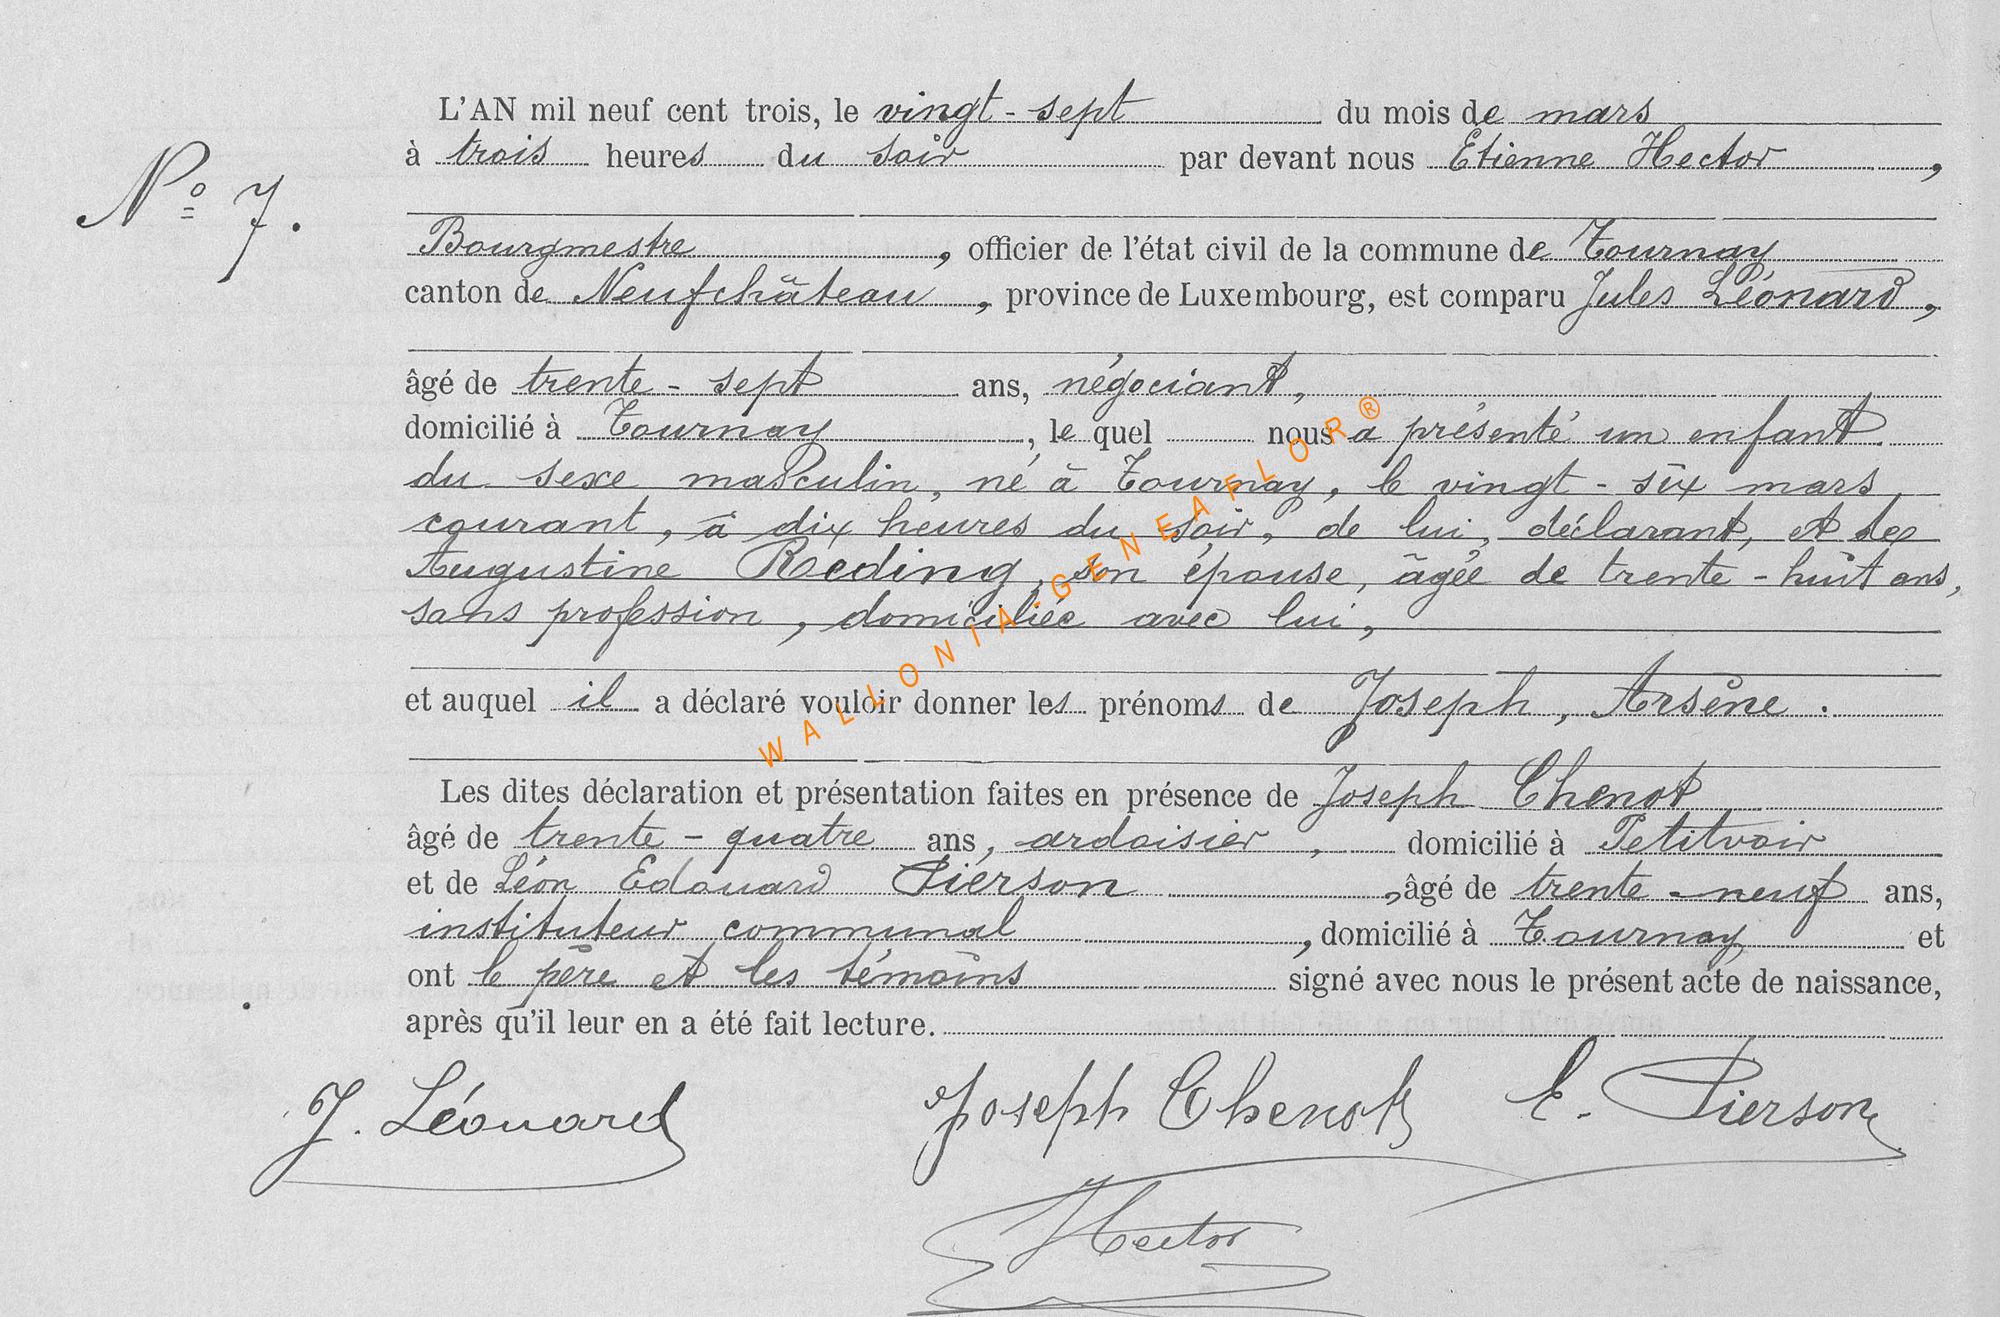 L'AN mil neuf cent trois, le vingt-sept du mois de mars
N° 7.
à trois heures du soir par devant nous Etienne Hector,
Bourgmestre, officier de l'état civil de la commune de Tournay
canton de Neufchâteau, province de Luxembourg, est comparu Jules Léonard,
âgé de trente-sept ans, négociant,
domicilié à Tournay, le quel nous a présenté un enfant
du sexe masculin, né à Tournay, le vingt-six mars
courant, à dix heures du soir, de lui, déclarant, et de
Augustine Reding, son épouse, âgée de trente-huit ans,
sans profession, domiciliée avec lui,
et auquel il a déclaré vouloir donner les prénoms de Joseph, Arsène.
Les dites déclaration et présentation faites en présence de Joseph Chenot
âgé de trente-quatre ans, ardoisier, domicilié à Petitvoir
et de Léon Edouard Pierson, âgé de trente-neuf ans,
instituteur communal, domicilié à Tournay et
ont le père et les témoins signé avec nous le présent acte de naissance,
après qu'il leur en a été fait lecture.
J. Léonard Joseph Chenot E. Pierson
Hector
WALLONIA-GENEAFLOR®